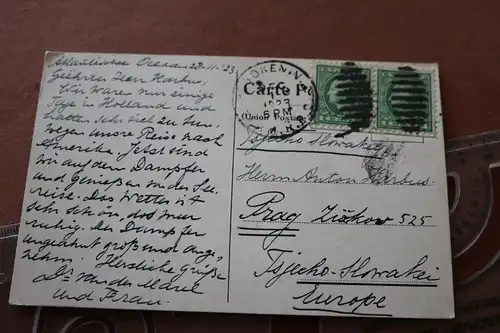 Atlantischer Ocean 28-11-'23
Geehrter Herr Harbus,
Wir waren nur einige
Tage in Holland und
hatten sehr viel zu tun
wegen unsre Reise nach
Amerika. Jetzt sind
wir auf dem Dampfer
und genießen in der See-
reise. Das Wetter ist
sehr schön, das Meer
ruhig, der Dampfer
ungeheuer groß und ange-
nehm. Herzliche Grüße
Dr van der Marel
und Frau.
HOBOKEN, N.J.
6 PM
1923
Carte P
(Union Postale
Tsjecho-Slowakei
Herrn Anton Harbus.
Prag Žižkow 525
Tsjecho-Slowakei
Europe